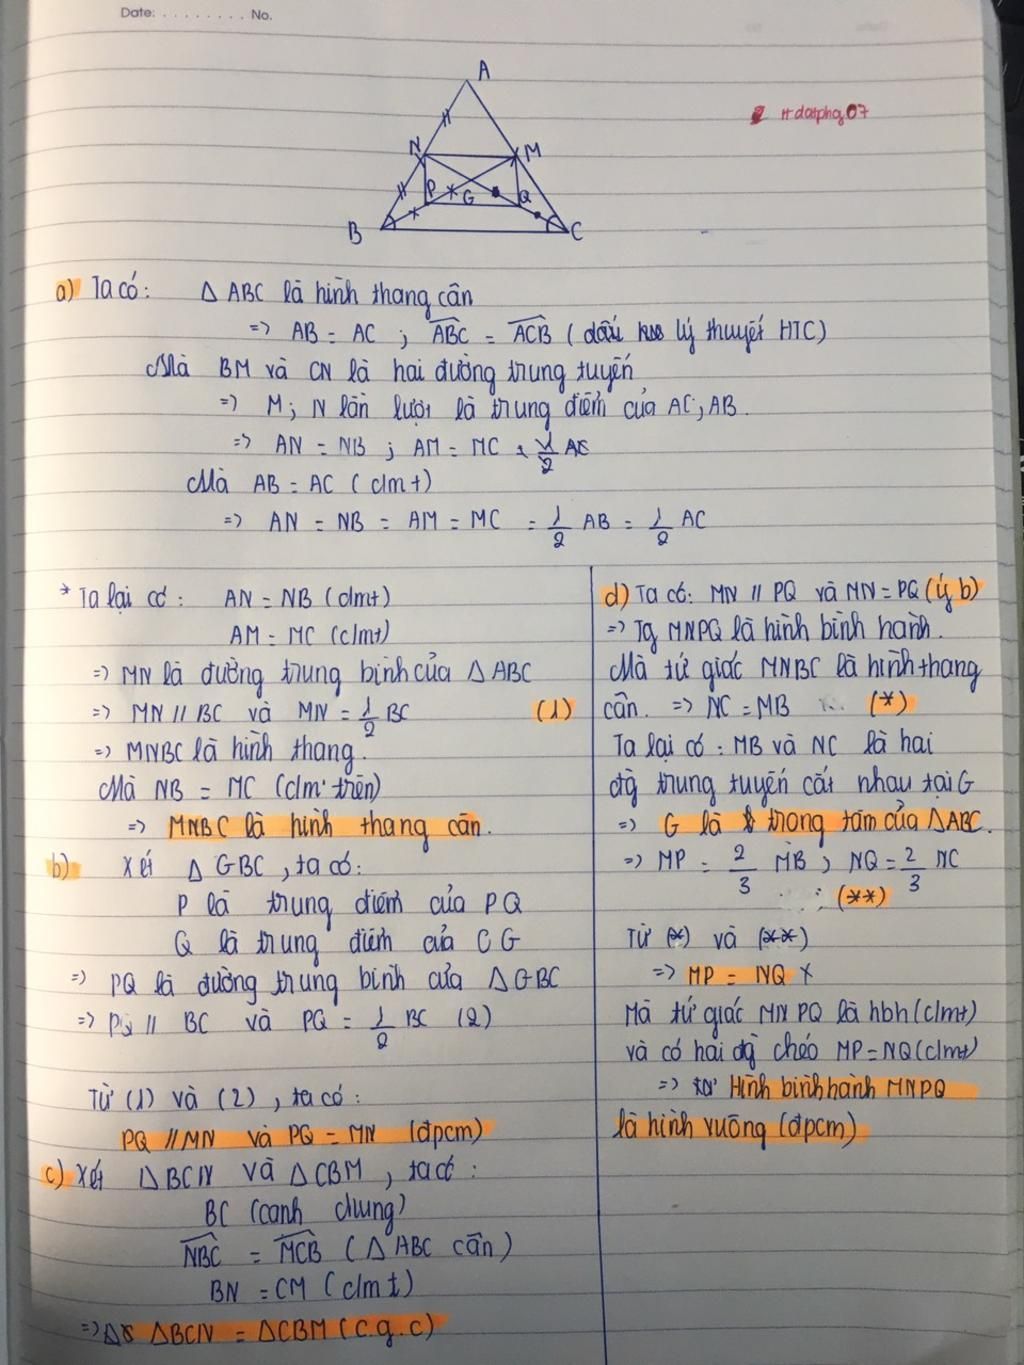 Date: ........ No.
A
N
M
P
G
Q
B
C
H-datphg07
a) Ta có: Δ ABC là hình thang cân
=> AB = AC ; ABC = ACB ( dấu lý thuyết HTC)
Mà BM và CN là hai đường trung tuyến
=> M; N lần lượt là trung điểm của AC; AB.
=> AN = NB ; AM = MC 1/2 AC
Mà AB = AC ( clmt)
=> AN = NB = AM = MC = 1/2 AB = 1/2 AC
* Ta lại có: AN = NB (clmt)
AM = MC (clmt)
=> MN là đường trung bình của Δ ABC
=> MN // BC và MN = 1/2 BC (1)
=> MNBC là hình thang.
Mà NB = MC (clm trên)
=> MNBC là hình thang cân.
b) Xét Δ GBC, ta có:
P là trung điểm của PQ
Q là trung điểm của CG
=> PQ là đường trung bình của Δ GBC
=> PQ // BC và PQ = 1/2 BC (2)
Từ (1) và (2), ta có:
PQ // MN và PQ = MN (đpcm)
c) Xét Δ BCN và Δ CBM, ta có:
BC (cạnh chung)
NBC = MCB (Δ ABC cân)
BN = CM (clmt)
=> Δ BCN = Δ CBM (c.g.c)
d) Ta có: MN // PQ và MN = PQ (ý b)
=> Tg MNPQ là hình bình hành.
Mà tứ giác MNBC là hình thang
cân. => NC = MB (*)
Ta lại có: MB và NC là hai
đg trung tuyến cắt nhau tại G
=> G là trong tâm của Δ ABC.
=> MP = 2/3 MB ; NQ = 2/3 NC
(**)
Từ (*) và (**)
=> MP = NQ
Mà tứ giác MNPQ là hbh (clmt)
và có hai đg chéo MP = NQ (clmt)
=> Hình bình hành MNPQ
là hình vuông (đpcm)